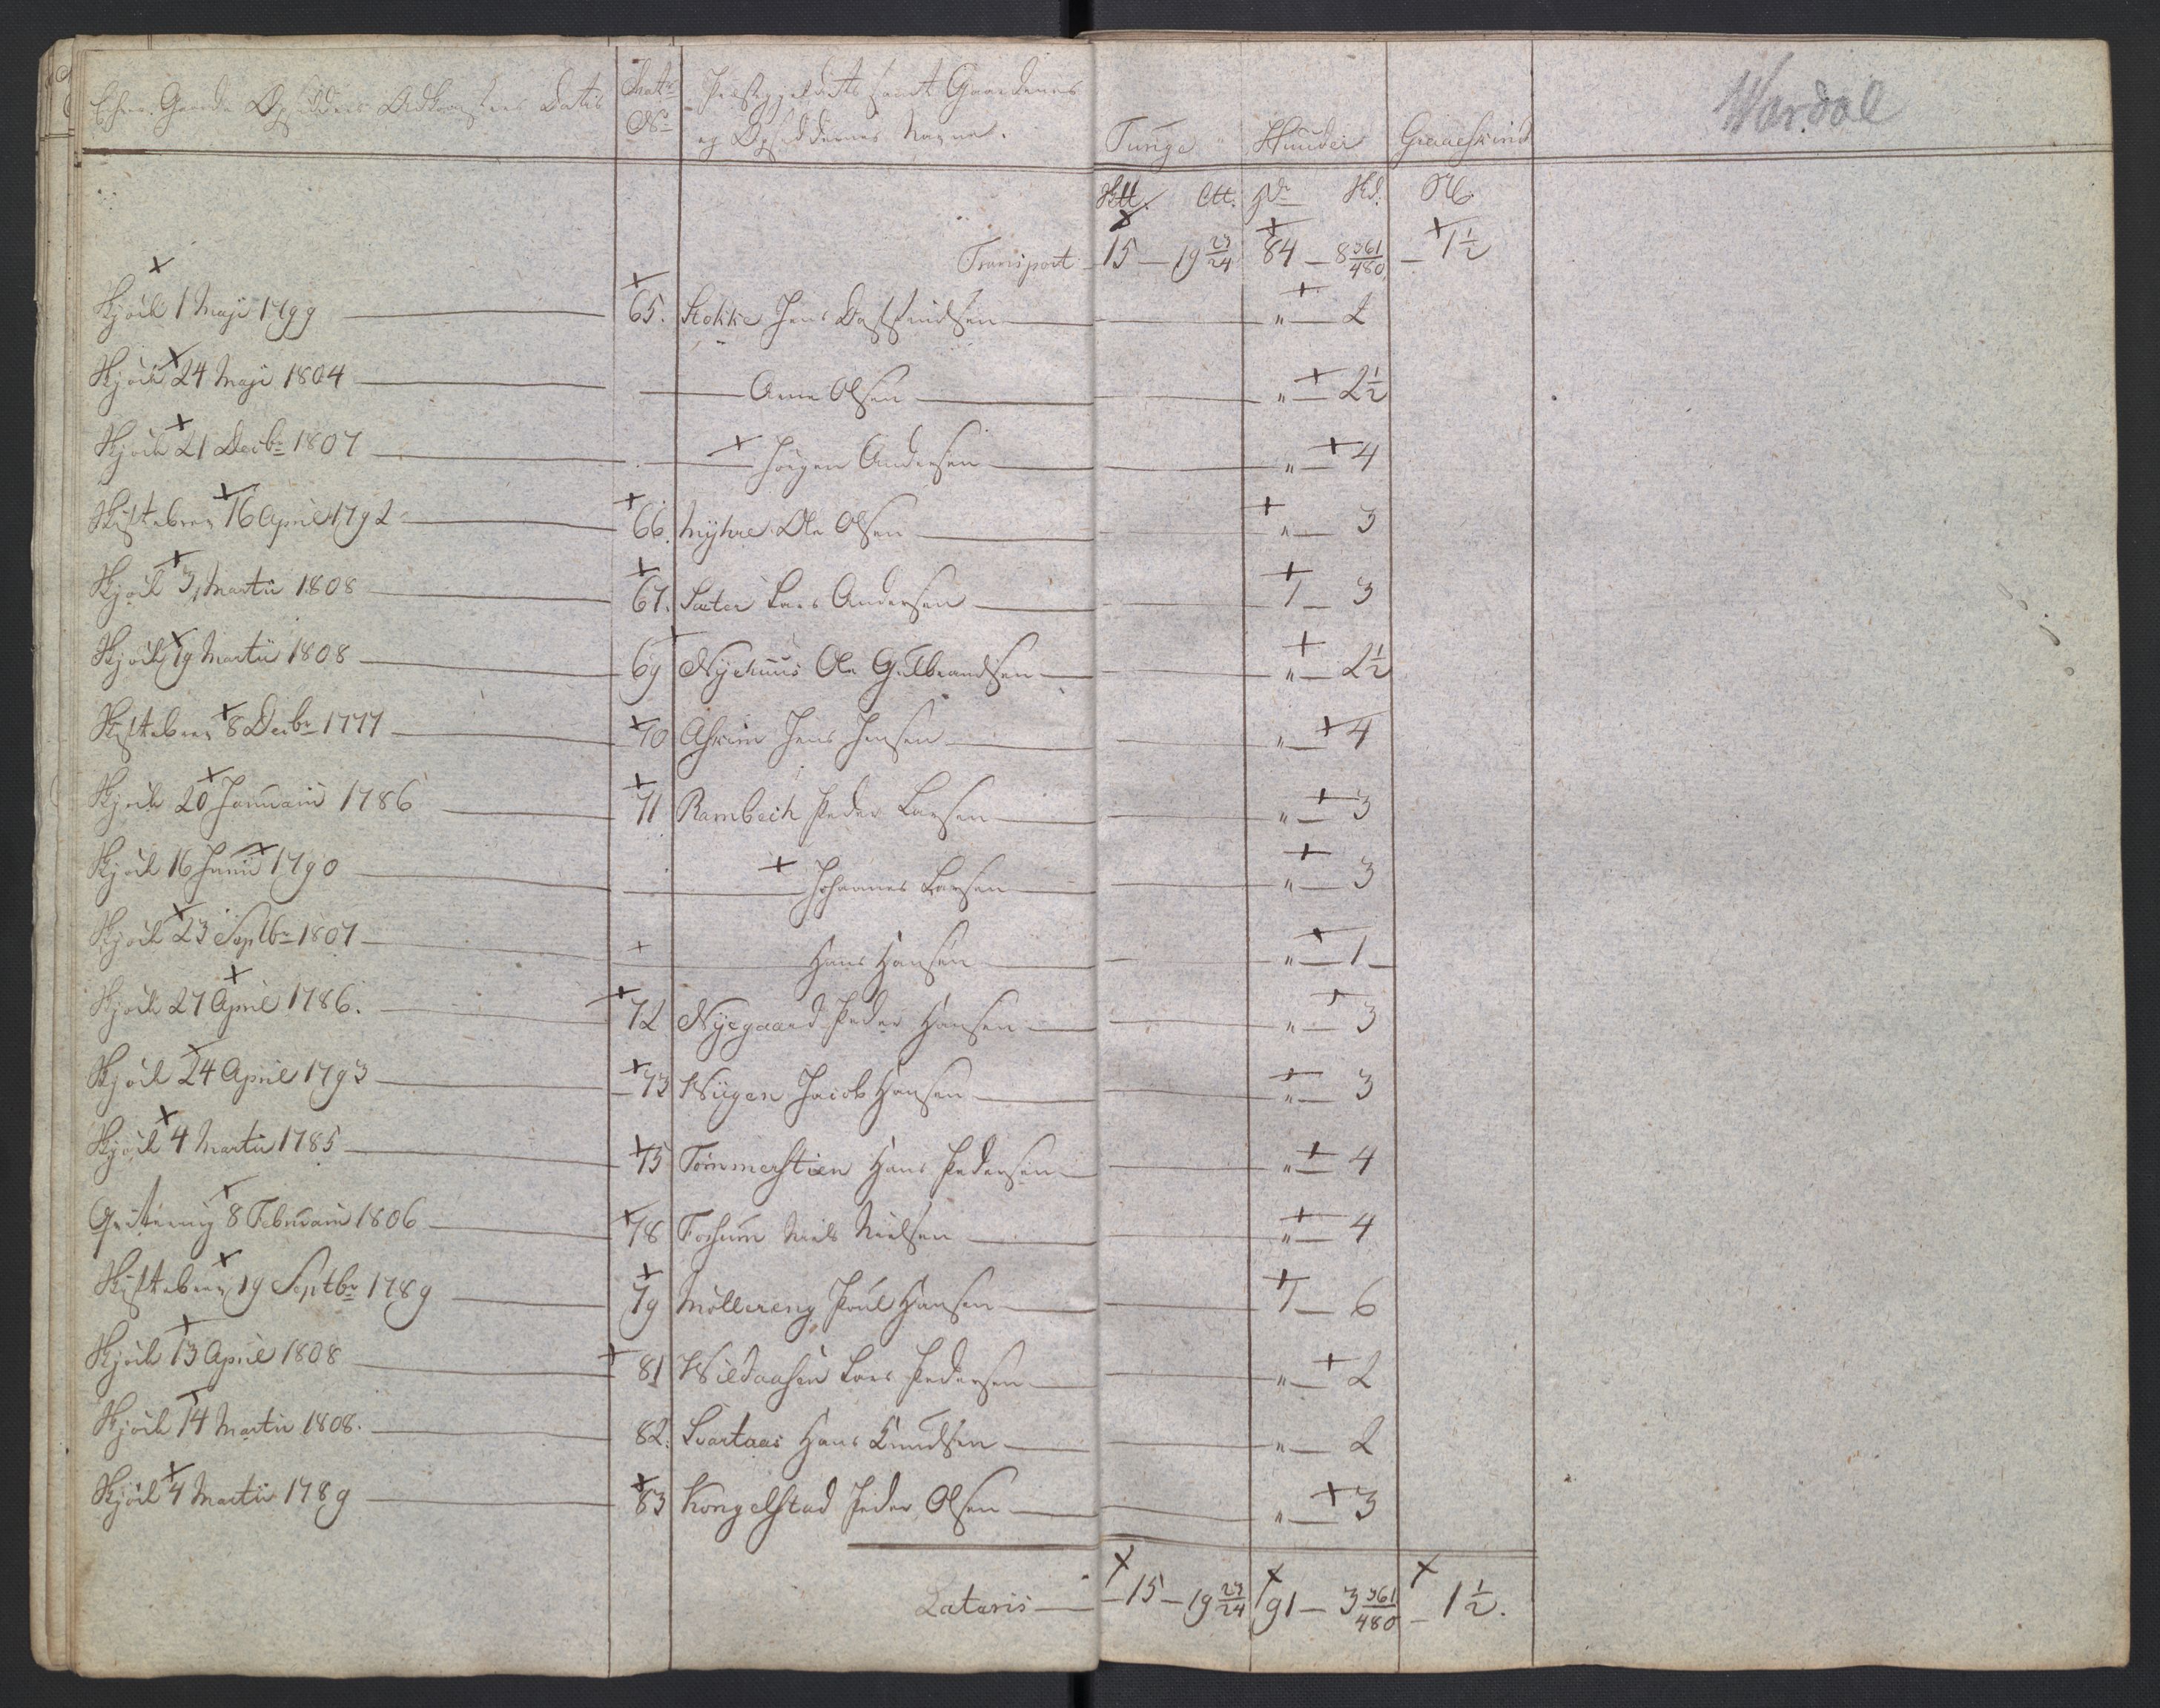 Wardal
Efter Gaarde Opsidders Adkomsters Datis | Matr: No | Præstegjeldets samt Gaardenes og Opsiddernes Navne. | Tunge | Huuder | Graaeskind
Sktt. Ltt. | Hd. | St.
Transport 15 — 19 23/24 | 84 — 8 361/480 | — 1 1/2
Skjöde 1 Maji 1799 — 65. Stokke Jens — „ — 2
Skjöde 24 Maji 1804 — Arne Olsen — „ — 2 1/2
Skjöde 21 Decbr 1807 — Jörgen Andersen — „ — 4
Skiftebrev 16 April 1792 — 66. Myhre Ole Olsen — „ — 3
Skjöde 3 Martii 1808 — 67. Sæter Lars Andersen — 1 — 3
Skjöde 19 Martii 1808 — 69 Nyehuus Ole Gulbrandsen — „ — 2 1/2
Skiftebrev 8 Decbr 1777 — 70 Askim Jens Jensen — „ — 4
Skjöde 20 Januarii 1786 — 71 Rambech Peder Larsen — „ — 3
Skjöde 16 Junii 1790 — Johannes Larsen — „ — 3
Skjöde 23 Septbr 1807 — Hans Hansen — „ — 1 —
Skjöde 27 April 1786. — 72 Nyegaard Peder Hansen — „ — 3
Skjöde 24 April 1793 — 73 Wiigen Jacob Hansen — „ — 3
Skjöde 4 Martii 1785 — 75 Tömmerstien Hans Pedersen — „ — 4
Qvitering 8 Februarii 1806 — 78 Fossum Niels Nielsen — „ — 4
Skiftebrev 19 Septbr 1789 — 79 Möllereng Poul Hansen — 1 — 6
Skjöde 13 April 1808 — 81 Wildaasen Lars Pedersen — „ — 2
Skjöde 14 Martii 1808. — 82. Svartaas Hans Knudsen — „ — 2
Skjöde 4 Martii 1789 — 83 Kongelstad Peder Olsen — „ — 3
Lateris — 15 — 19 23/24 | 91 — 3 361/480 | — 1 1/2.